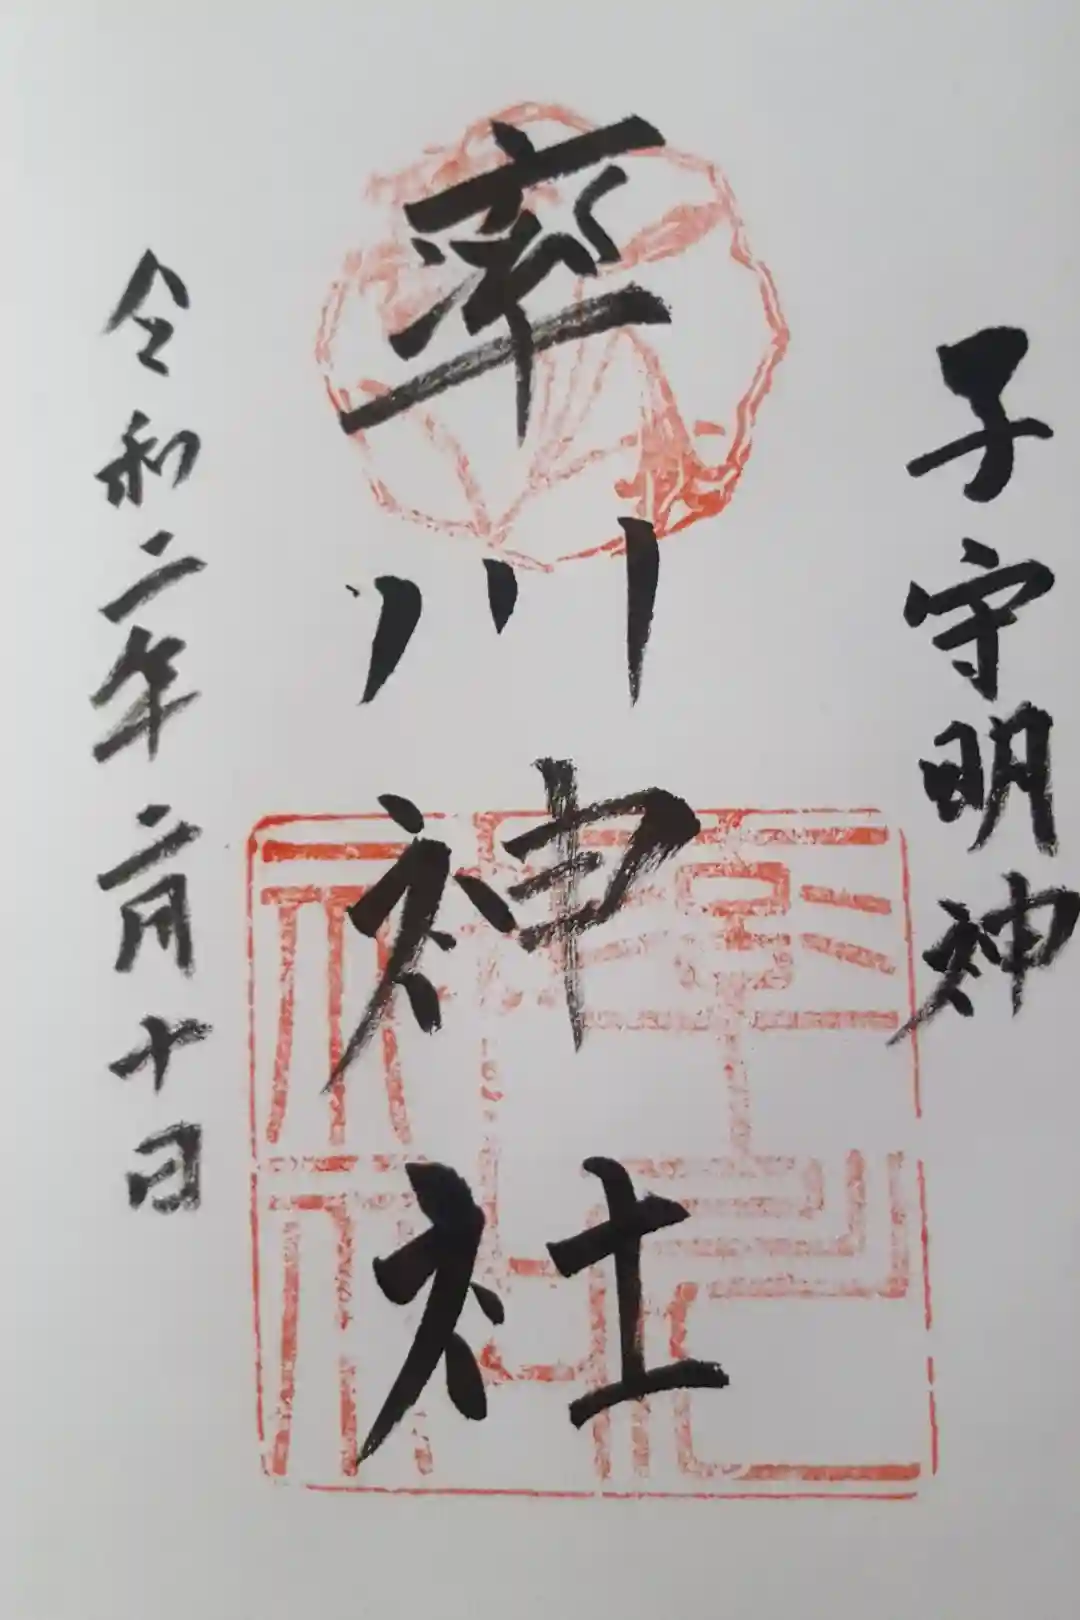 子守明神
率川神社
令和二年二月十日